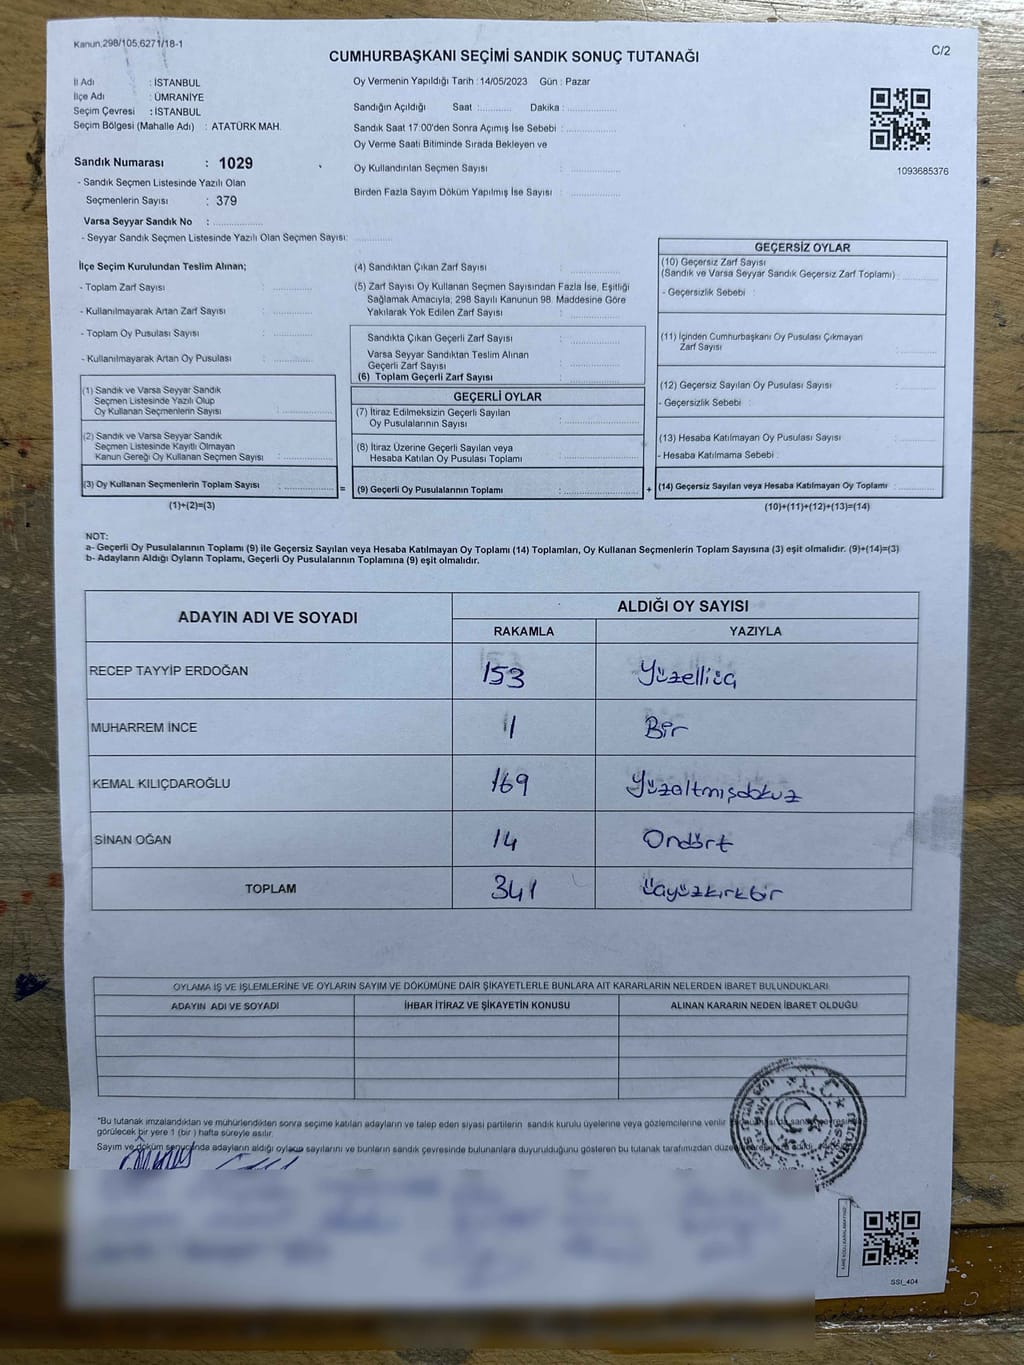 Kanun,298/105,6271/18-1
C/2
CUMHURBAŞKANI SEÇİMİ SANDIK SONUÇ TUTANAĞI
İl Adı : İSTANBUL
İlçe Adı : ÜMRANİYE
Seçim Çevresi : İSTANBUL
Seçim Bölgesi (Mahalle Adı) : ATATÜRK MAH.
Sandık Numarası : 1029
- Sandık Seçmen Listesinde Yazılı Olan
Seçmenlerin Sayısı : 379
Varsa Seyyar Sandık No : ..............
- Seyyar Sandık Seçmen Listesinde Yazılı Olan Seçmen Sayısı: ............
Oy Vermenin Yapıldığı Tarih : 14/05/2023 Gün : Pazar
Sandığın Açıldığı Saat :.......... Dakika :..............
Sandık Saat 17:00'den Sonra Açımış İse Sebebi : ..............
Oy Verme Saati Bitiminde Sırada Bekleyen ve
Oy Kullandırılan Seçmen Sayısı : ..............
Birden Fazla Sayım Döküm Yapılmış İse Sayısı : ..............
1093685376
İlçe Seçim Kurulundan Teslim Alınan;
- Toplam Zarf Sayısı : ............
- Kullanılmayarak Artan Zarf Sayısı : ............
- Toplam Oy Pusulası Sayısı : ............
- Kullanılmayarak Artan Oy Pusulası : ............
(1) Sandık ve Varsa Seyyar Sandık
Seçmen Listesinde Yazılı Olup
Oy Kullanan Seçmenlerin Sayısı : ............
(2) Sandık ve Varsa Seyyar Sandık
Seçmen Listesinde Kayıtlı Olmayan
Kanun Gereği Oy Kullanan Seçmen Sayısı : ............
(3) Oy Kullanan Seçmenlerin Toplam Sayısı : ............
(1)+(2)=(3)
(4) Sandıktan Çıkan Zarf Sayısı : ............
(5) Zarf Sayısı Oy Kullanan Seçmen Sayısından Fazla İse, Eşitliği
Sağlamak Amacıyla; 298 Sayılı Kanunun 98. Maddesine Göre
Yakılarak Yok Edilen Zarf Sayısı : ............
Sandıkta Çıkan Geçerli Zarf Sayısı : ............
Varsa Seyyar Sandıktan Teslim Alınan
Geçerli Zarf Sayısı : ............
(6) Toplam Geçerli Zarf Sayısı : ............
GEÇERLİ OYLAR
(7) İtiraz Edilmeksizin Geçerli Sayılan
Oy Pusulalarının Sayısı : ............
(8) İtiraz Üzerine Geçerli Sayılan veya
Hesaba Katılan Oy Pusulası Toplamı : ............
= (9) Geçerli Oy Pusulalarının Toplamı : ............
GEÇERSİZ OYLAR
(10) Geçersiz Zarf Sayısı
(Sandık ve Varsa Seyyar Sandık Geçersiz Zarf Toplamı) : ............
- Geçersizlik Sebebi :
(11) İçinden Cumhurbaşkanı Oy Pusulası Çıkmayan
Zarf Sayısı : ............
(12) Geçersiz Sayılan Oy Pusulası Sayısı : ............
- Geçersizlik Sebebi :
(13) Hesaba Katılmayan Oy Pusulası Sayısı : ............
- Hesaba Katılmama Sebebi :
+ (14) Geçersiz Sayılan veya Hesaba Katılmayan Oy Toplamı : ............
(10)+(11)+(12)+(13)=(14)
NOT:
a- Geçerli Oy Pusulalarının Toplamı (9) ile Geçersiz Sayılan veya Hesaba Katılmayan Oy Toplamı (14) Toplamları, Oy Kullanan Seçmenlerin Toplam Sayısına (3) eşit olmalıdır. (9)+(14)=(3)
b- Adayların Aldığı Oyların Toplamı, Geçerli Oy Pusulalarının Toplamına (9) eşit olmalıdır.
ADAYIN ADI VE SOYADI ALDIĞI OY SAYISI
RAKAMLA YAZIYLA
RECEP TAYYİP ERDOĞAN 153 Yüzelliüç
MUHARREM İNCE 1 Bir
KEMAL KILIÇDAROĞLU 169 Yüzaltmışdokuz
SİNAN OĞAN 14 Ondört
TOPLAM 341 üçyüzkırkbir
OYLAMA İŞ VE İŞLEMLERİNE VE OYLARIN SAYIM VE DÖKÜMÜNE DAİR ŞİKAYETLERLE BUNLARA AİT KARARLARIN NELERDEN İBARET BULUNDUKLARI
ADAYIN ADI VE SOYADI İHBAR İTİRAZ VE ŞİKAYETİN KONUSU ALINAN KARARIN NEDEN İBARET OLDUĞU
*Bu tutanak imzalandıktan ve mühürlendikten sonra seçime katılan adayların ve talep eden siyasi partilerin sandık kurulu üyelerine veya gözlemcilerine verilir
görülecek bir yere 1 (bir) hafta süreyle asılır.
Sayım ve döküm sonucunda adayların aldığı oyların sayılarını ve bunların sandık çevresinde bulunanlara duyurulduğunu gösteren bu tutanak tarafımızdan
SSI_404